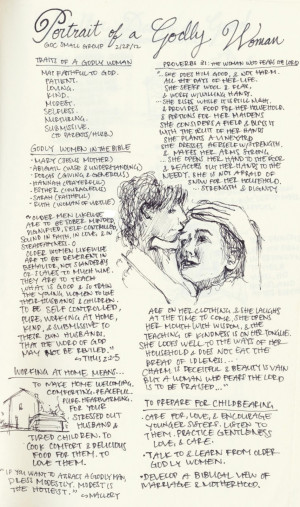 Portrait of a Godly Woman
GOC SMALL GROUP 2/28/12
TRAITS OF A GODLY WOMAN
FAITHFUL TO GOD.
PATIENT.
LOVING.
KIND.
MODEST.
SELFLESS.
NURTURING.
SUBMISSIVE.
(TO PARENTS/HUSB)
GODLY WOMEN IN THE BIBLE
- MARY (JESUS' MOTHER)
- ABIGAIL (WISE & UNDERSTANDING)
- DORCAS (GIVING & GENEROUS)
- HANNAH (PRAYERFUL)
- ESTHER (COURAGEOUS)
- SARAH (FAITHFUL)
- RUTH (WOMAN OF VIRTUE)
"OLDER MEN LIKEWISE
ARE TO BE SOBER MINDED,
DIGNIFIED, SELF-CONTROLLED,
SOUND IN FAITH, IN LOVE, & IN
STEADFASTNESS.
OLDER WOMEN LIKEWISE
ARE TO BE REVERENT IN
BEHAVIOR, NOT SLANDERERS
OR SLAVES TO MUCH WINE.
THEY ARE TO TEACH
WHAT IS GOOD & SO TRAIN
THE YOUNG WOMEN TO LOVE
THEIR HUSBANDS & CHILDREN,
TO BE SELF CONTROLLED,
PURE, WORKING AT HOME,
KIND, & SUBMISSIVE TO
THEIR OWN HUSBANDS,
THAT THE WORD OF GOD
MAY NOT BE REVILED."
WORKING AT HOME MEANS...
TO MAKE HOME WELCOMING,
COMFORTING, PEACEFUL,
FOR YOUR
STRESSED OUT
HUSBAND &
TIRED CHILDREN. TO
COOK COMFORT & DELICIOUS
FOOD FOR THEM. TO
LOVE THEM.
"IF YOU WANT TO ATTRACT A GODLY MAN,
DRESS MODESTLY. MODEST IS
THE HOTTEST." - MALLERY
PROVERBS 31: THE WOMAN WHO FEARS THE LORD
"...SHE DOES HIM GOOD, & NOT HARM,
ALL THE DAYS OF HER LIFE.
SHE SEEKS WOOL & FLAX,
& WORKS W/WILLING HANDS.
SHE RISES WHILE IT IS STILL NIGHT,
& PROVIDES FOOD FOR HER HOUSEHOLD &
PORTIONS FOR HER MAIDENS
SHE CONSIDERS A FIELD & BUYS IT
WITH THE FRUIT OF HER HANDS
SHE PLANTS A VINEYARD
SHE DRESSES HERSELF W/STRENGTH,
& MAKES HER ARMS STRONG,
...SHE OPENS HER HAND TO THE POOR
& REACHES OUT HER HANDS TO THE
NEEDY. SHE IS NOT AFRAID OF
SNOW FOR HER HOUSEHOLD.
STRENGTH & DIGNITY
ARE ON HER CLOTHING, & SHE LAUGHS
AT THE TIME TO COME. SHE OPENS
HER MOUTH WITH WISDOM, & THE
TEACHING OF KINDNESS IS ON HER TONGUE.
SHE LOOKS WELL TO THE WAYS OF HER
HOUSEHOLD & DOES NOT EAT THE
BREAD OF IDLENESS...
CHARM IS DECEITFUL & BEAUTY IS VAIN
BUT A WOMAN WHO FEARS THE LORD
IS TO BE PRAISED..."
TO PREPARE FOR CHILDBEARING,
- CARE FOR, LOVE, & ENCOURAGE
YOUNGER SISTERS. LISTEN TO
THEM. PRACTICE GENTLENESS
LOVE, & CARE.
• TALK TO & LEARN FROM OLDER
GODLY WOMEN.
• DEVELOP A BIBLICAL VIEW OF
MARRIAGE & MOTHERHOOD.